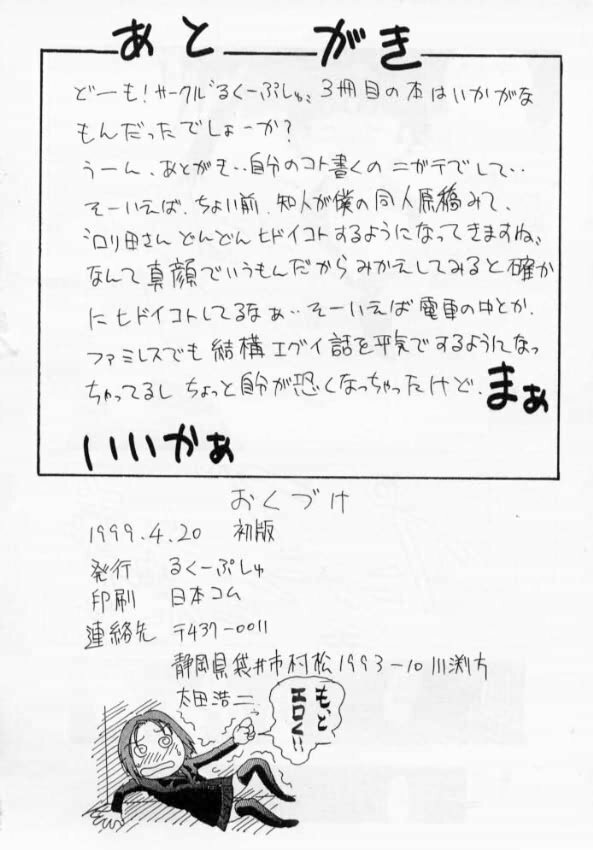 あとがき
どーも!サークル“るくーぷしゅ„3冊目の本はいかがな
もんだったでしょーか?
うーん、あとがき‥自分のコト書くのニガテでして‥
そーいえば、ちょい前、知人が僕の同人原稿みて、
どんどんヒドイコトするようになってきますね„
なんて真顔でいうもんだからみかえしてみると確か
にヒドイコトしてるなぁ‥そーいえば電車の中とか、
ファミレスでも結構エグイ話を平気でするようになっ
ちゃってるしちょっと自分が恐くなっちゃったけど、まぁ
いいかぁ
おくづけ
1999.4.20 初版
発行 るくーぷしゅ
印刷 日本コム
連絡先 〒437-0011
静岡県袋井市村松1993-10川渕方
太田浩二
もっと
エロい!!